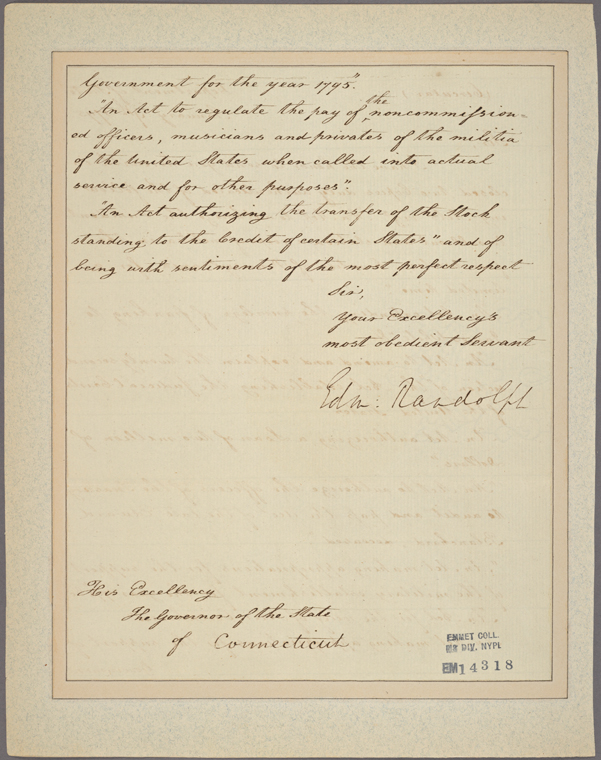 Government for the year 1795".
"An Act to regulate the pay of the noncommission=
ed officers, musicians and privates of the militia
of the United States when called into actual
service and for other purposes".
"An Act authorizing the transfer of the Stock
standing to the Credit of certain States" and of
being with sentiments of the most perfect respect
Sir,
Your Excellency's
most obedient Servant
Edm: Randolph
His Excellency
The Governor of the State
of Connecticut
EMMET COLL.
MS DIV. NYPL
EM14318